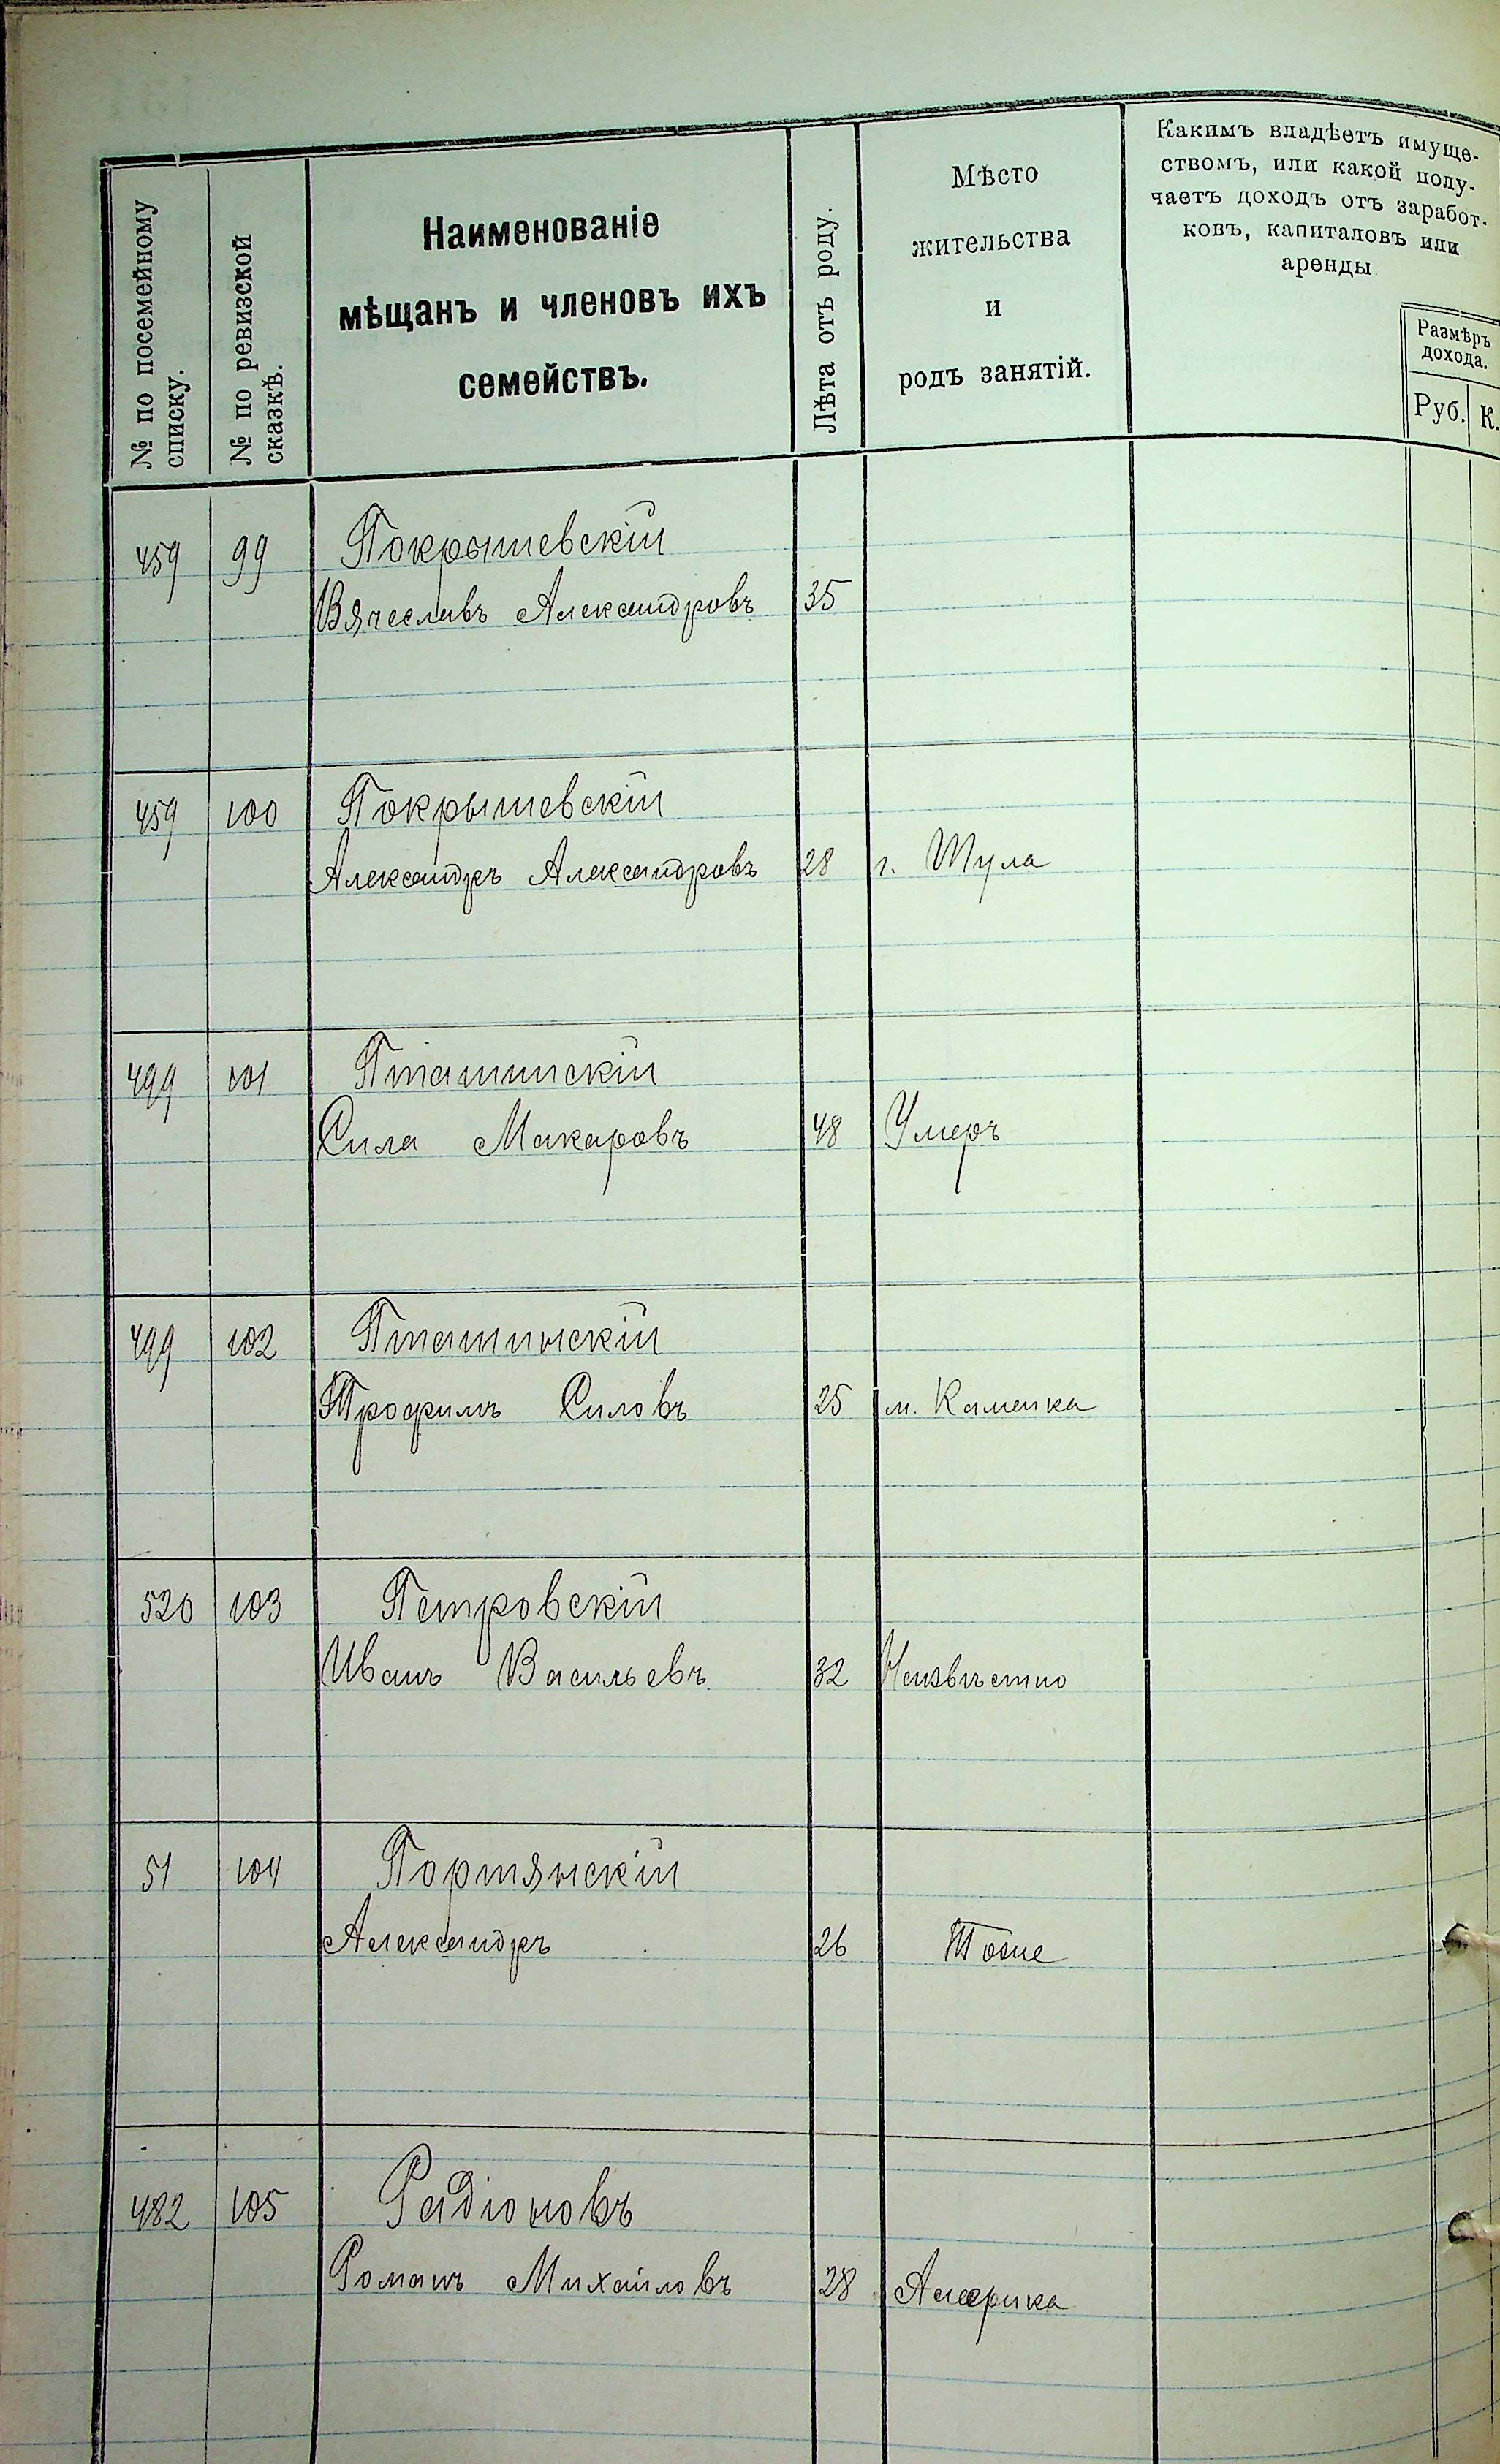 № по посемейному
списку.
№ по ревизской
сказкѣ.
Наименованіе
мѣщанъ и членовъ ихъ
семействъ.
Лѣта отъ роду.
Мѣсто
жительства
и
родъ занятій.
Какимъ владѣетъ имуще-
ствомъ, или какой полу-
чаетъ доходъ отъ заработ-
ковъ, капиталовъ или
аренды
Размѣръ
дохода.
Руб. К.
459 99 Покрышевскій
Вячеславъ Александровъ 35
459 100 Покрышевскій
Александръ Александровъ 28 г. Тула
499 101 Пташинскій
Сила Макаровъ 48 Умеръ
499 102 Пташинскій
Трофимъ Силовъ 25 м. Каменка
520 103 Петровскій
Иванъ Васильевъ 32 Неизвѣстно
51 104 Портянскій
Александръ 26 Тоже
482 105 Радіоновъ
Романъ Михайловъ 28 Америка